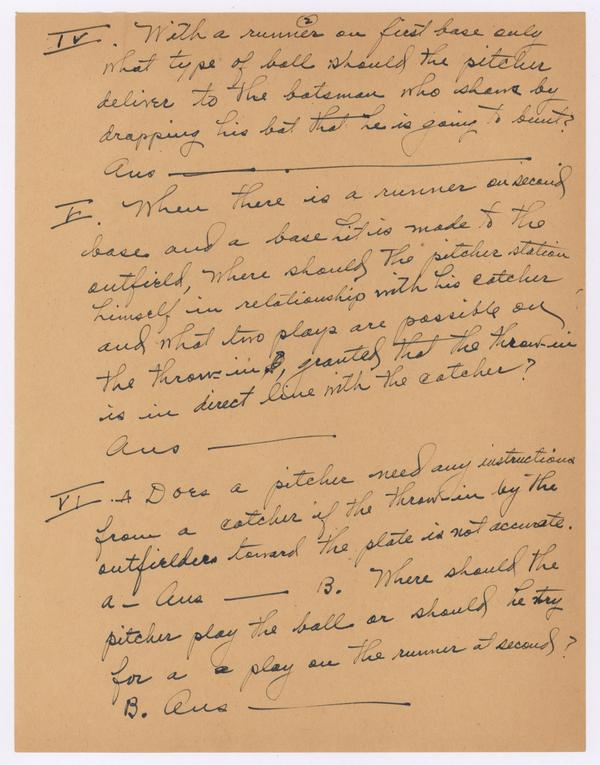 ②
IV. With a runner on first base only
what type of ball should the pitcher
deliver to the batsman who shows by
drapping his bat that he is going to bunt?
Ans —
V. When there is a runner on second
base and a base hit is made to the
outfield, where should the pitcher station
himself in relationship with his catcher
and what two plays are possible on
the throw-in, granted that the throw-in
is in direct line with the catcher?
Ans —
VI. A Does a pitcher need any instructions
from a catcher if the throw-in by the
outfielders toward the plate is not accurate.
a - Ans — B. Where should the
pitcher play the ball or should he try
for a a play on the runner at second?
B. Ans —